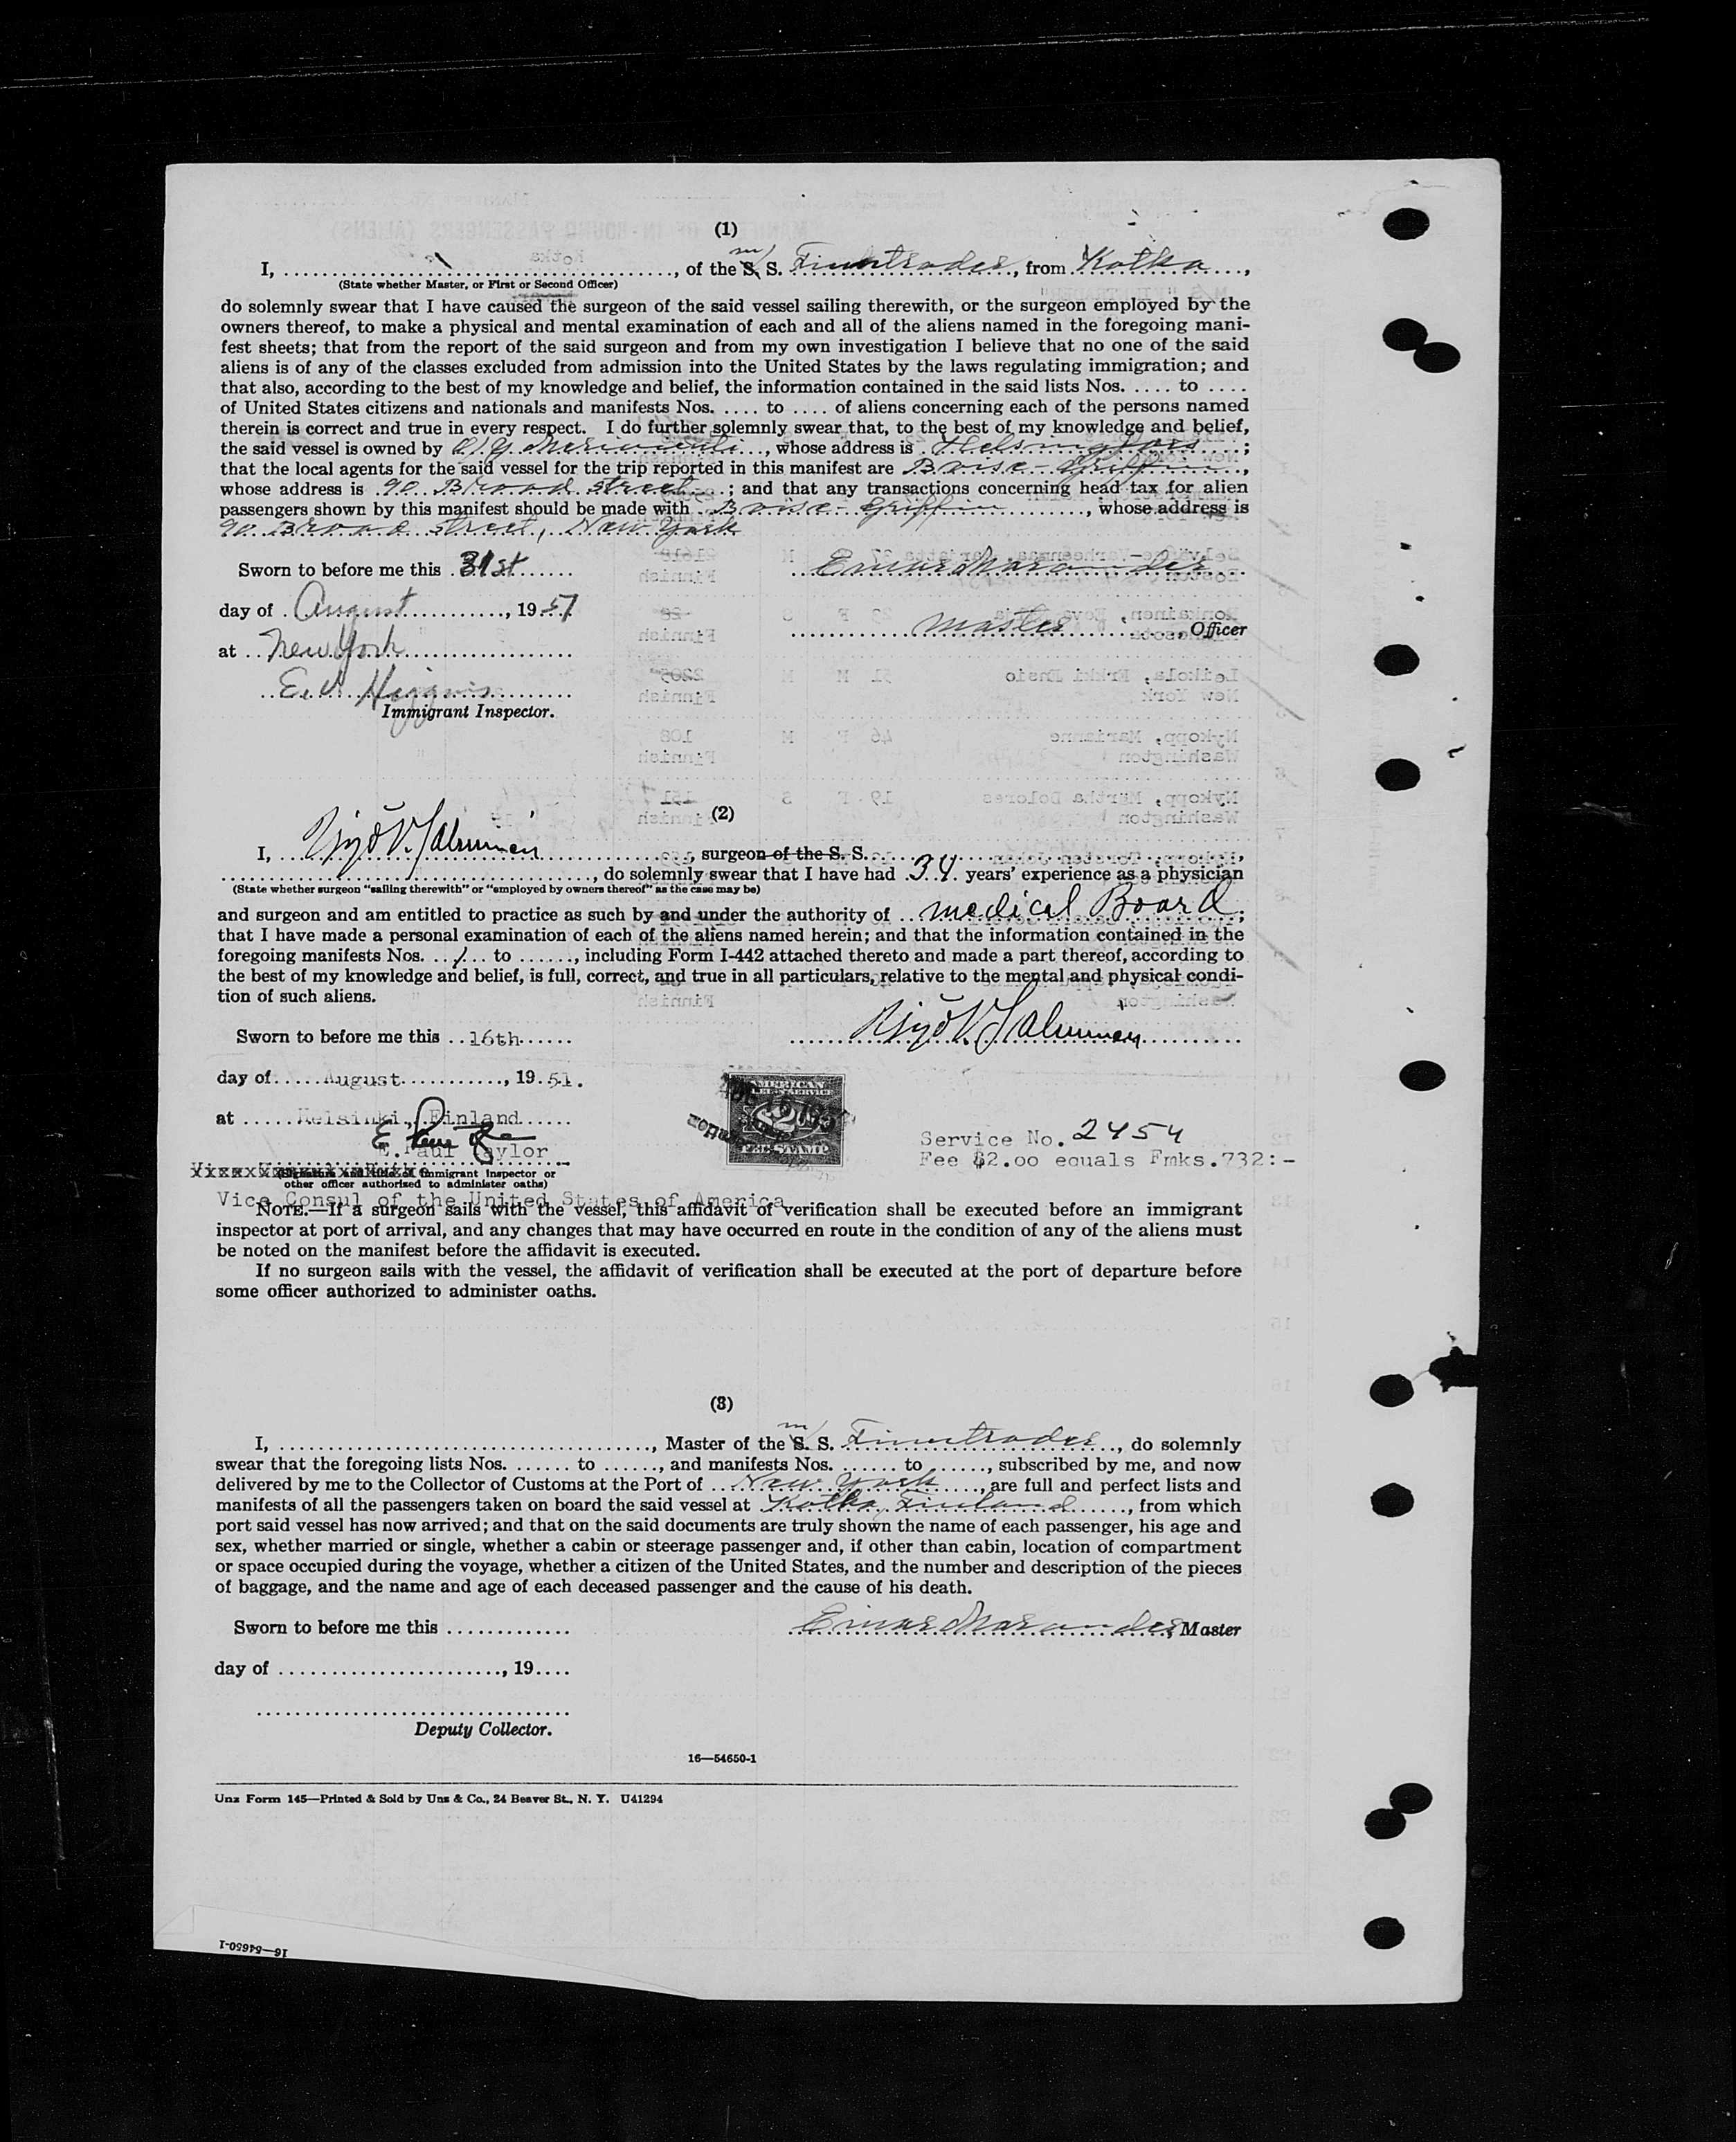 (1)
I, ........................................, of the m/ S. S. Finntrader, from Kotka,
(State whether Master, or First or Second Officer)
do solemnly swear that I have caused the surgeon of the said vessel sailing therewith, or the surgeon employed by the
owners thereof, to make a physical and mental examination of each and all of the aliens named in the foregoing mani-
fest sheets; that from the report of the said surgeon and from my own investigation I believe that no one of the said
aliens is of any of the classes excluded from admission into the United States by the laws regulating immigration; and
that also, according to the best of my knowledge and belief, the information contained in the said lists Nos. .... to ....
of United States citizens and nationals and manifests Nos. .... to .... of aliens concerning each of the persons named
therein is correct and true in every respect. I do further solemnly swear that, to the best of my knowledge and belief,
the said vessel is owned by O/Y, whose address is Helsingfors;
that the local agents for the said vessel for the trip reported in this manifest are Boise-Griffin,
whose address is 90 Broad street; and that any transactions concerning head tax for alien
passengers shown by this manifest should be made with Boise-Griffin, whose address is
90 Broad street, New York
Sworn to before me this 31st
Einar
day of August, 1951
Master, Officer
at New York
E.V. Higgins
Immigrant Inspector.
(2)
I, Yrjö V. Salminen, surgeon of the S. S. ........,
........, do solemnly swear that I have had 34 years' experience as a physician
(State whether surgeon "sailing therewith" or "employed by owners thereof" as the case may be)
and surgeon and am entitled to practice as such by and under the authority of medical Board;
that I have made a personal examination of each of the aliens named herein; and that the information contained in the
foregoing manifests Nos. 1 to ......, including Form I-442 attached thereto and made a part thereof, according to
the best of my knowledge and belief, is full, correct, and true in all particulars, relative to the mental and physical condi-
tion of such aliens.
Yrjö V. Salminen
Sworn to before me this 16th
day of August, 1951.
AMERICAN
FEE STAMP
at Helsinki, Finland
Service No. 2454
E. Paul Taylor
Fee $2.00 equals Fmks.732:-
(Signature and title of immigrant inspector or
other officer authorized to administer oaths)
Vice Consul of the United States of America
NOTE.—If a surgeon sails with the vessel, this affidavit of verification shall be executed before an immigrant
inspector at port of arrival, and any changes that may have occurred en route in the condition of any of the aliens must
be noted on the manifest before the affidavit is executed.
If no surgeon sails with the vessel, the affidavit of verification shall be executed at the port of departure before
some officer authorized to administer oaths.
(3)
I, ........................................, Master of the m/ S. S. Finntrader, do solemnly
swear that the foregoing lists Nos. ....... to ......, and manifests Nos. ....... to ......, subscribed by me, and now
delivered by me to the Collector of Customs at the Port of New York, are full and perfect lists and
manifests of all the passengers taken on board the said vessel at Kotka, Finland, from which
port said vessel has now arrived; and that on the said documents are truly shown the name of each passenger, his age and
sex, whether married or single, whether a cabin or steerage passenger and, if other than cabin, location of compartment
or space occupied during the voyage, whether a citizen of the United States, and the number and description of the pieces
of baggage, and the name and age of each deceased passenger and the cause of his death.
Sworn to before me this .............
Einar, Master
day of ........................, 19....
Deputy Collector.
16—54650-1
Unz Form 145—Printed & Sold by Unz & Co., 24 Beaver St., N. Y. U41294
16—54650-1